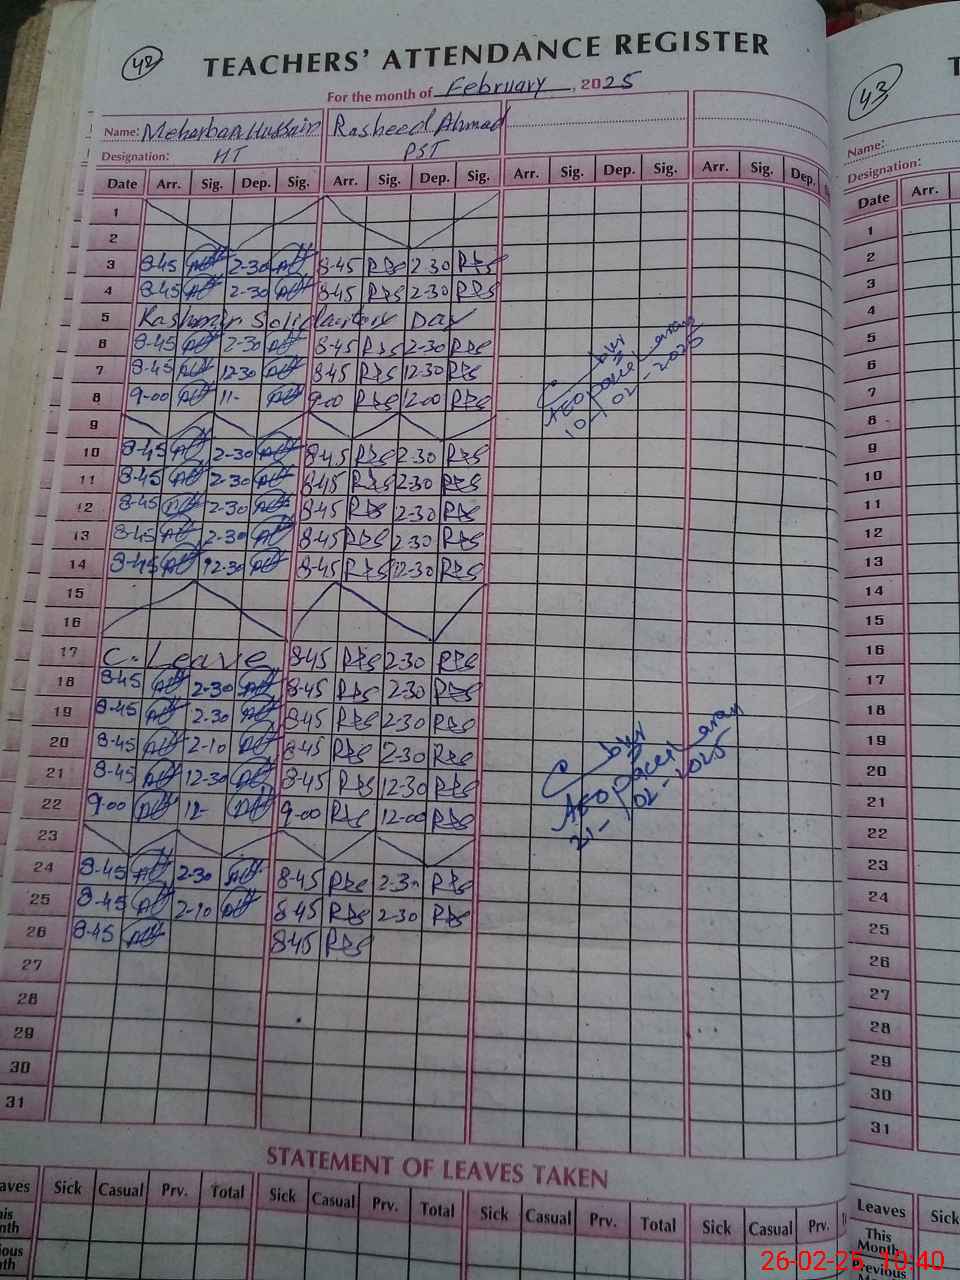 42
TEACHERS' ATTENDANCE REGISTER
For the month of February, 2025
Name: Meharban Hussain Rasheed Ahmad
Designation: HT PST
Date Arr. Sig. Dep. Sig. Arr. Sig. Dep. Sig. Arr. Sig. Dep. Sig. Arr. Sig. Dep.
1
2
3 8-45 2-30 8-45 2-30
4 8-45 2-30 8-45 2-30
5 Kashmir Solidarity Day
6 8-45 2-30 8-45 2-30
7 8-45 12-30 8-45 12-30
8 9-00 11- 9-00 12-00
9
10 8-45 2-30 8-45 2-30
11 8-45 2-30 8-45 2-30
12 8-45 2-30 8-45 2-30
13 8-45 2-30 8-45 2-30
14 8-45 12-30 8-45 12-30
15
16
17 C. Leave 8-45 2-30
18 8-45 2-30 8-45 2-30
19 8-45 2-30 8-45 2-30
20 8-45 2-10 8-45 2-30
21 8-45 12-30 8-45 12-30
22 9-00 12- 9-00 12-00
23
24 8-45 2-30 8-45 2-30
25 8-45 2-10 8-45 2-30
26 8-45 8-45
27
28
29
30
31
AEO
10-02-2025
AEO
21-02-2025
STATEMENT OF LEAVES TAKEN
Sick Casual Prv. Total Sick Casual Prv. Total Sick Casual Prv. Total Sick Casual Prv.
43
Name:
Designation:
Date Arr.
1
2
3
4
5
6
7
8
9
10
11
12
13
14
15
16
17
18
19
20
21
22
23
24
25
26
27
28
29
30
31
Leaves Sick
This
Month
Previous
26-02-25 10:40